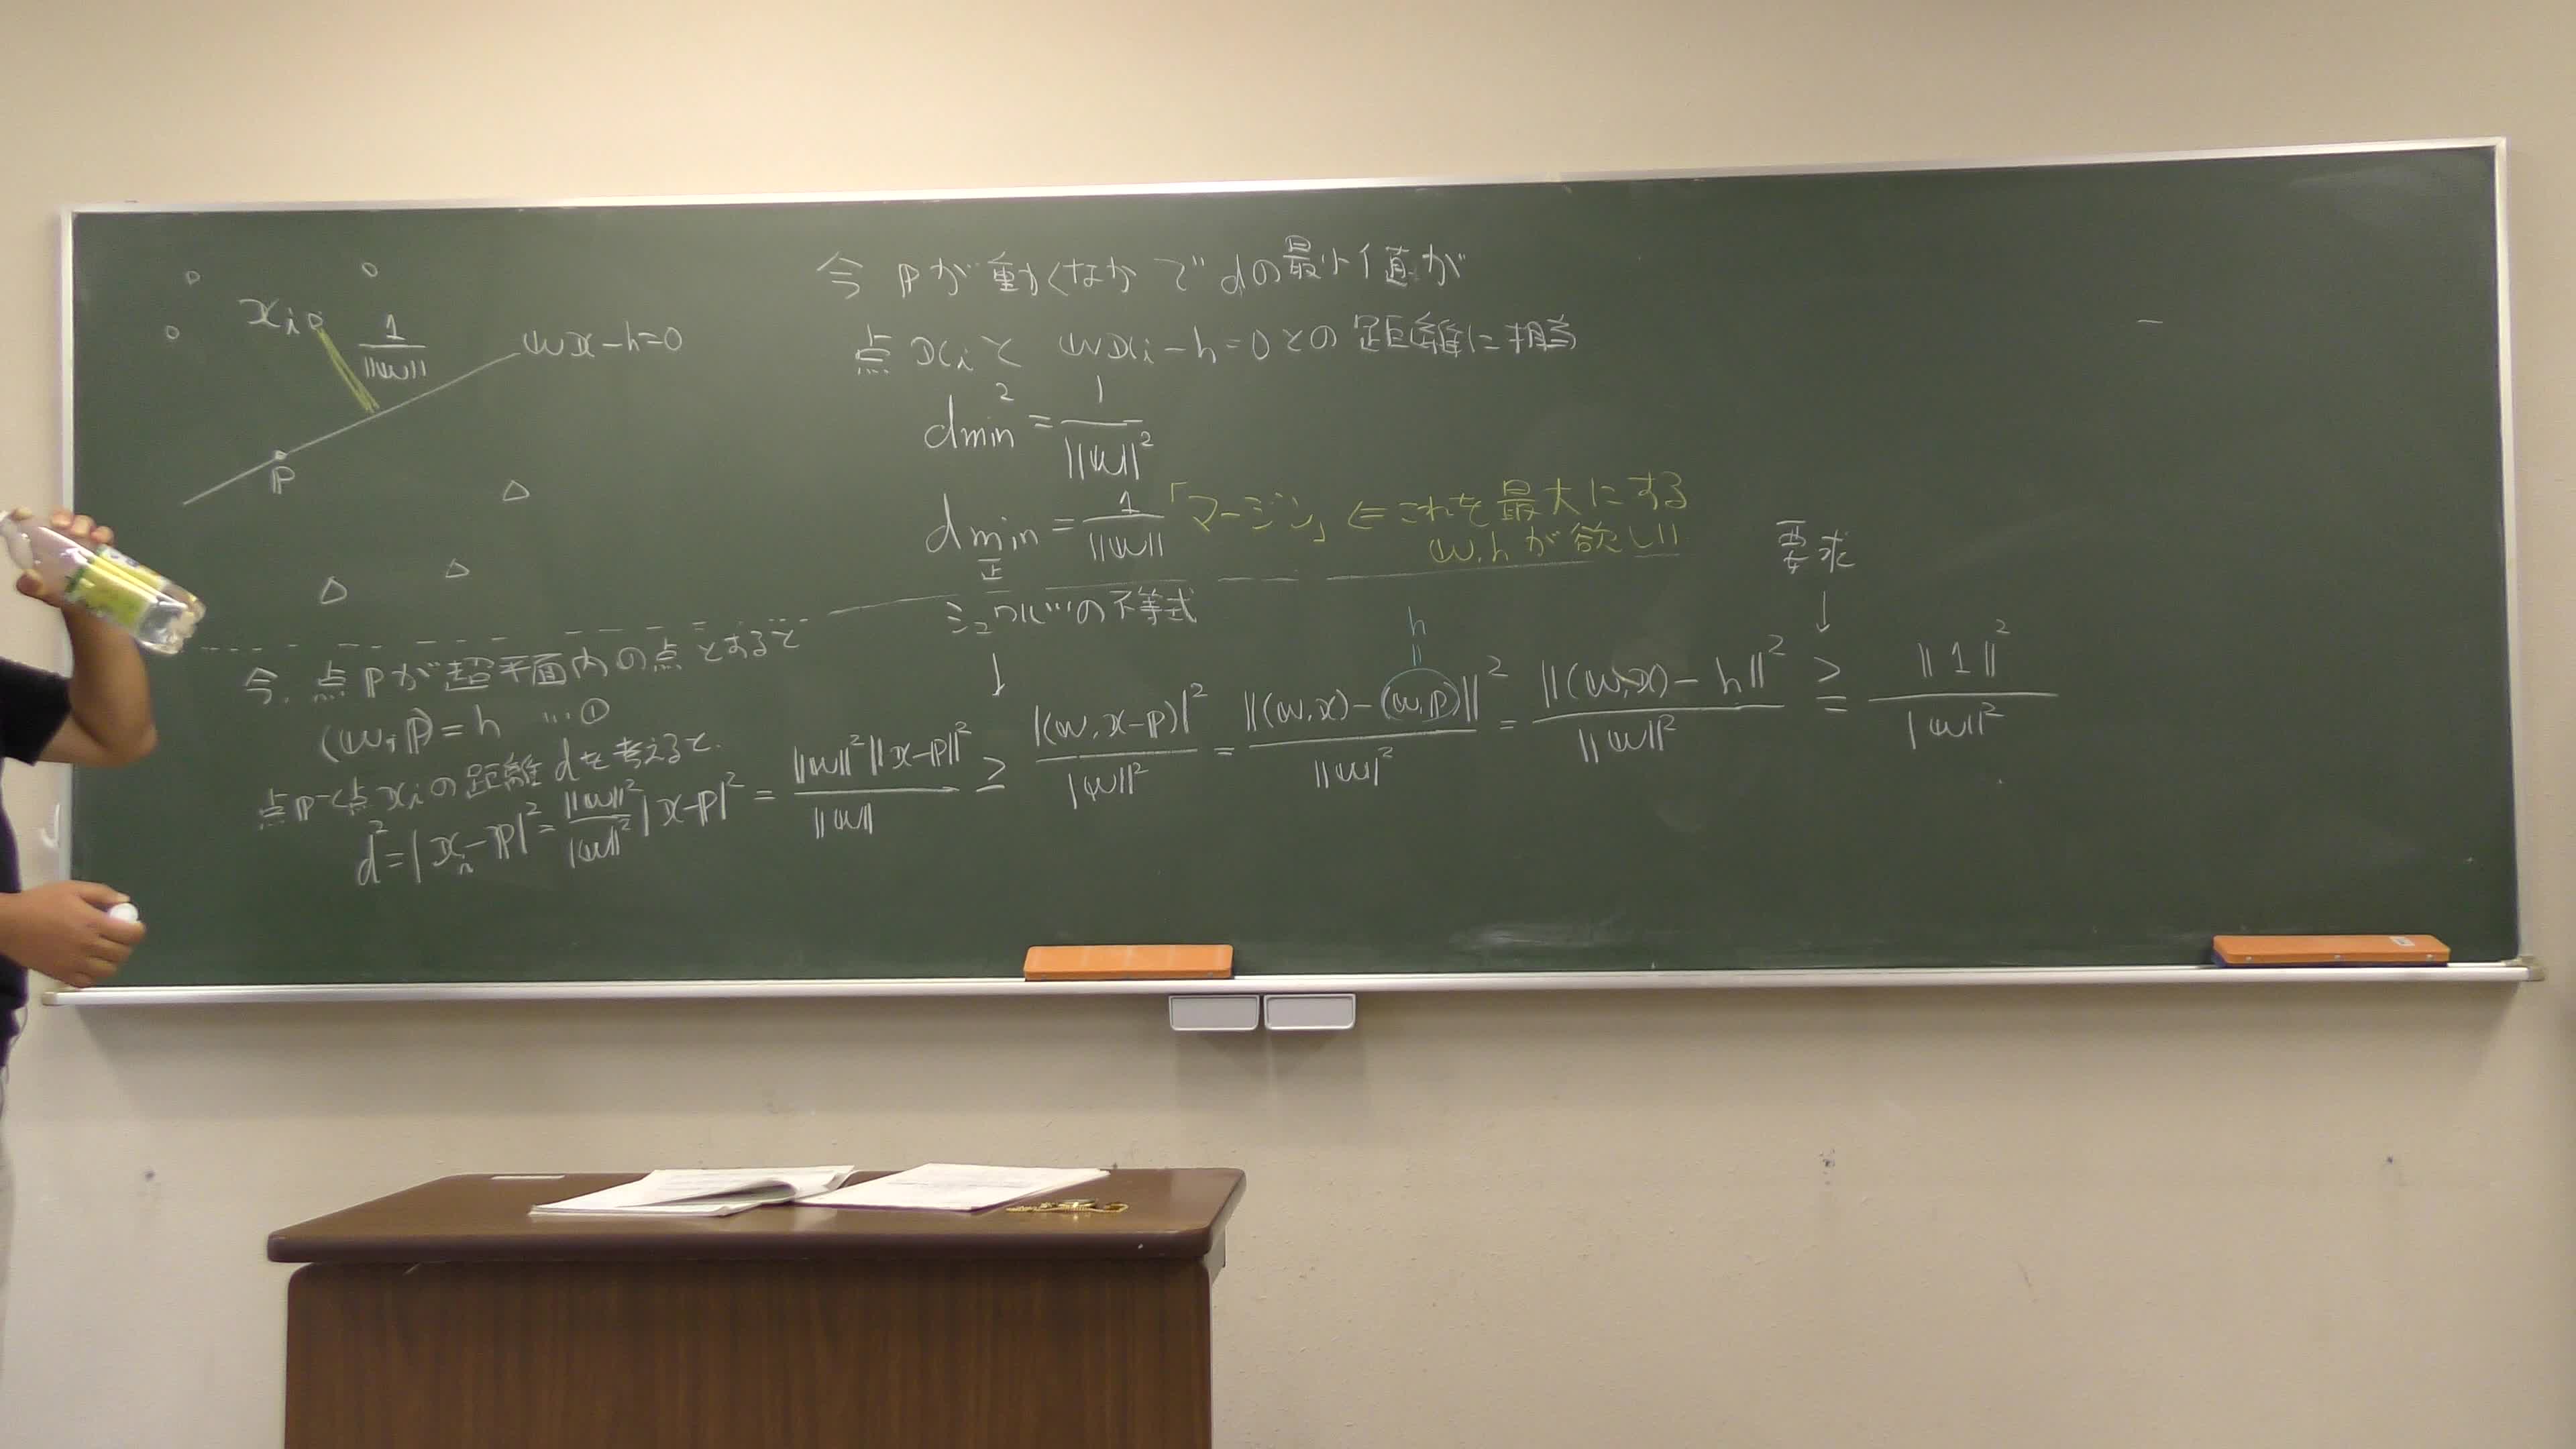 xi
1/‖w‖
wx−h=0
P
今 Pが動くなかで dの最小値が
点 xiと wxi−h=0との距離に相当
dmin² = 1/‖w‖²
dmin = 1/‖w‖ 「マージン」 ⇐ これを最大にする
正
w,hが欲しい
要求
↓
シュワルツの不等式
↓
今. 点Pが超平面内の点とすると
(w,P)=h …①
点Pと点xiの距離dを考えると.
h
||
d²=|xi−P|²=‖w‖²/|w‖²|x−P|² = ‖w‖²‖x−P‖²/‖w‖ ≥ |(w,x−P)|²/|w‖² = ‖(w,x)−(w,P)‖²/‖w|² = ‖(w,x)−h‖²/‖w‖² ≧ ‖1‖²/|w‖²